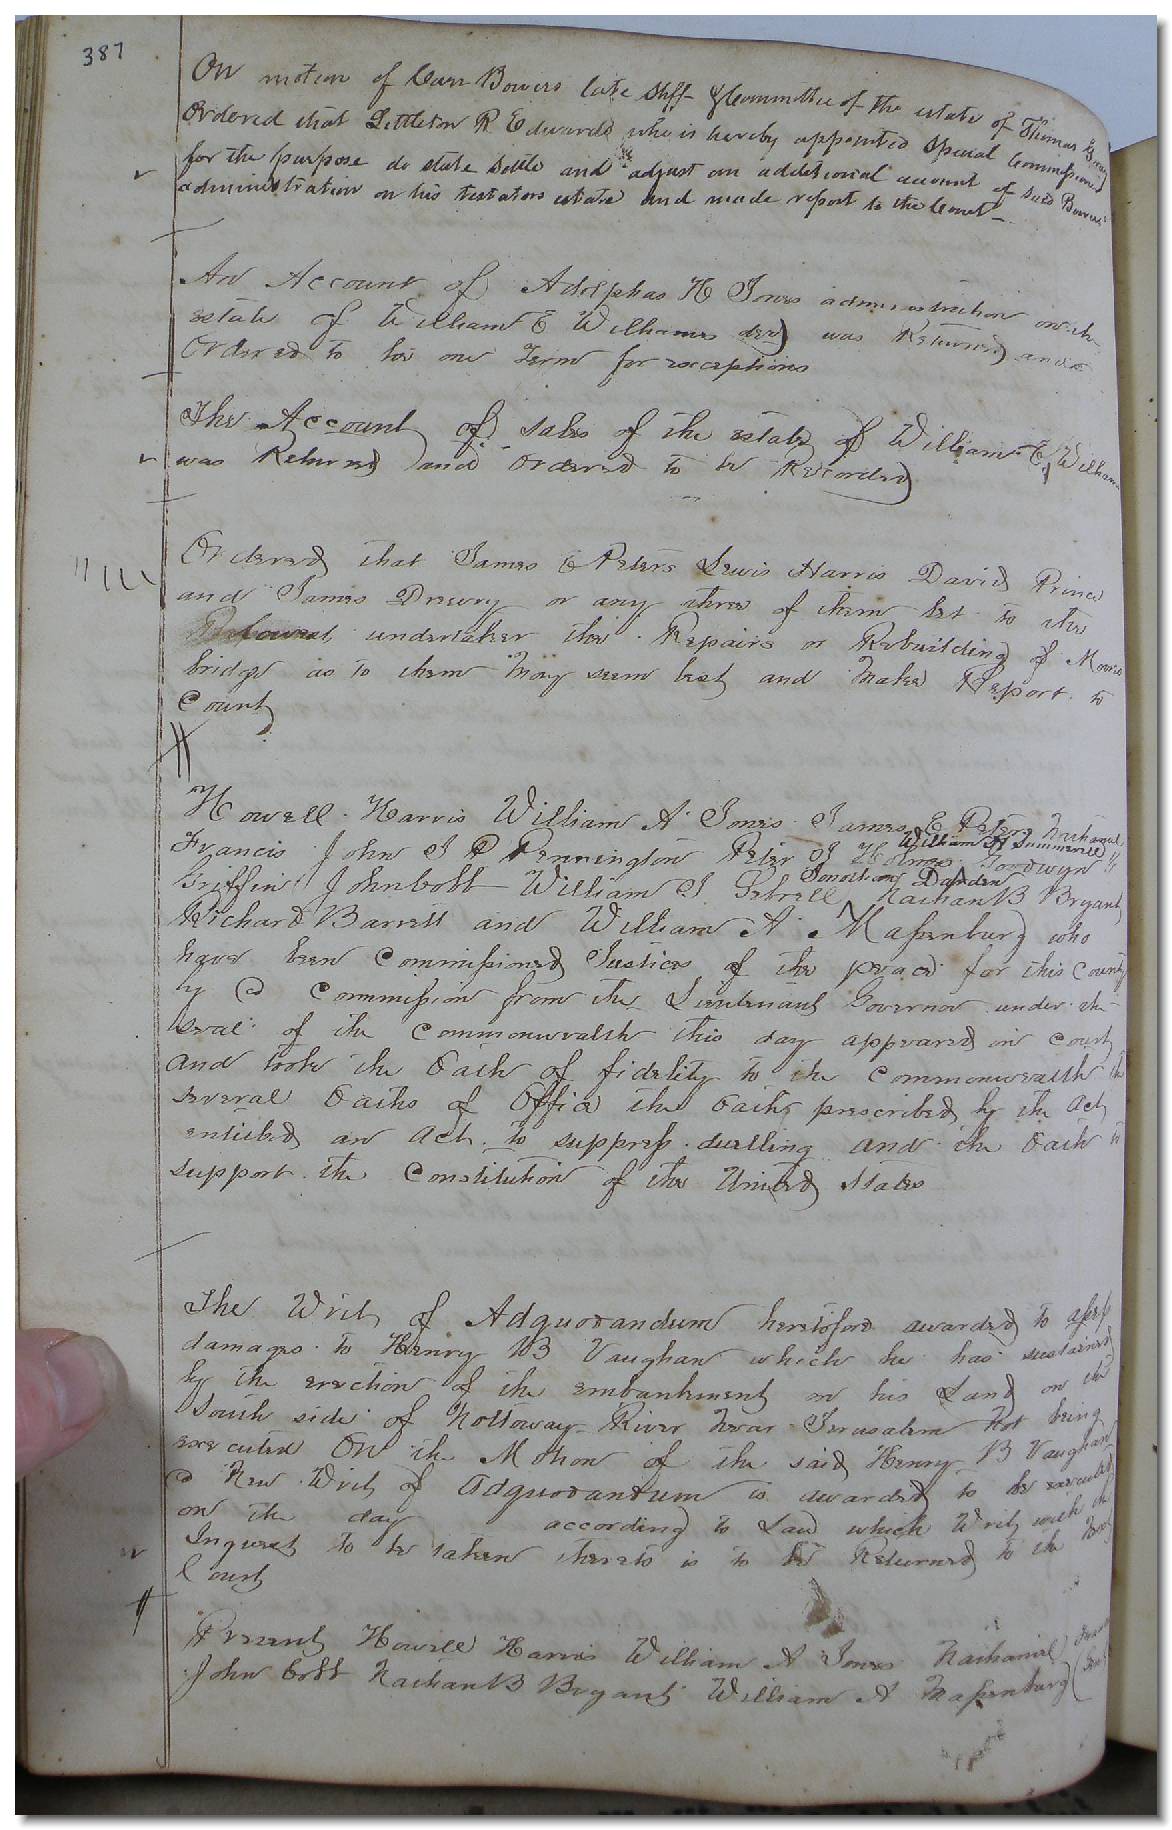 387
On motion of Carr Bowers late Shff & Committee of the estate of Thomas
Ordered that Littleton R Edwards who is hereby appointed Special Commissioner
for the purpose do state settle and adjust an additional account of said Bowers
administration on his testators estate and made report to the Court
An Account of Adolphus H Jones administration on the
estate of William E Williams decd was Returned and
Ordered to lie one Term for exceptions
The Account of sales of the estate of William E. Williams
was Returned and Ordered to be Recorded
Ordered that James E Peters Lewis Harris David Prince
and James Drewry or any three of them let to the
Lowest undertaker the Repairs or Rebuilding of
bridge as to them may seem best and make Report to
Court
Howell Harris William A Jones James E Peters Nathaniel
William H Summerell
Francis John J P Pennington Peter J Holmes Goodwyn
Jonathan Darden
Griffin John Cobb William J Sebrell Nathan B Bryant
Richard Barrett and William A Massenburg who
have been Commissioned Justices of the peace for this County
by a Commission from the Lieutenant Governor under the
seal of the Commonwealth this day appeared in Court
and took the Oath of fidelity to the Commonwealth the
several Oaths of Office the Oaths prescribed by the Act
entitled an Act to suppress duelling and the Oath to
support the Constitution of the United States
The Writ of Adquodandum heretofore awarded to assess
damages to Henry B Vaughan which he has sustained
by the erection of the embankment on his Land on the
South side of Nottoway River near Jerusalem not being
executed On the Motion of the said Henry B Vaughan
a New Writ of Adquodandum is awarded to be executed
on the day according to Law which Writ with the
Inquest to be taken thereto is to be Returned to the Next
Court
Present Howell Harris William A Jones Nathaniel Francis
John Cobb Nathan B Bryant William A Massenburg